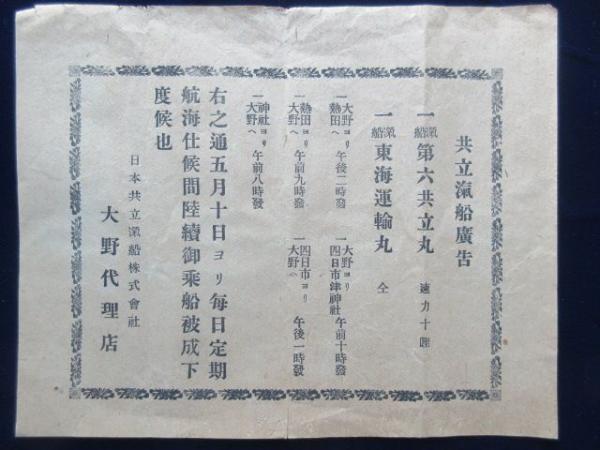 共立滊船廣告
一滊船第六共立丸 速力十浬
一滊船東海運輸丸 仝
一大野ヨリ熱田ヘ 午後二時發
一大野ヨリ四日市津神社 午前十時發
一熱田ヨリ大野ヘ 午前九時發
一四日市ヨリ大野ヘ 午後一時發
一神社ヨリ大野ヘ 午前八時發
右之通五月十日ヨリ毎日定期
航海仕候間陸續御乘船被成下
度候也
日本共立滊船株式會社
大野代理店